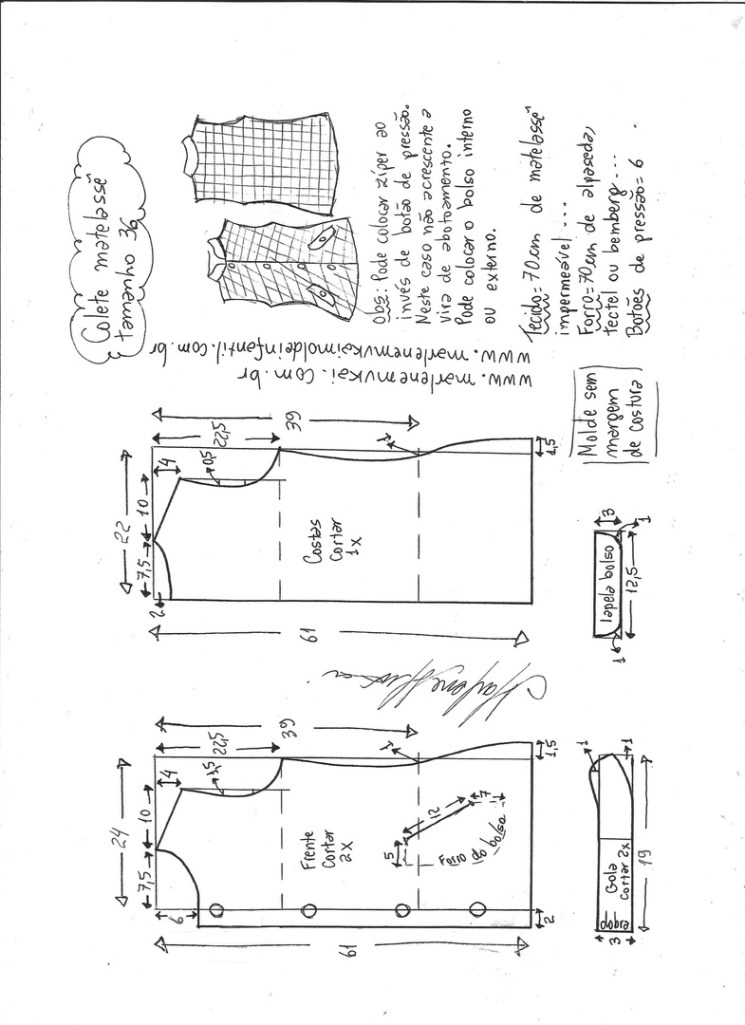 Colete matelassê
tamanho 36
Obs: Pode colocar zíper ao
invés de botão de pressão.
Neste caso não acrescente a
vira de abotoamento.
Pode colocar o bolso interno
ou externo.
Tecido= 70cm de matelassê
impermeável...
Forro= 70cm de alpaseda,
tectel ou bemberg...
Botões de pressão= 6
www.marlenemukaimoldeinfantil.com.br
www.marlenemukai.com.br
Molde sem
margem
de costura
22
7,5
10
4
22,5
39
0,5
2
1
1,5
61
Costas
Cortar
1x
lapela bolso
3
1
12,5
1
24
7,5
10
4
22,5
39
1,5
6
1
1,5
61
2
Frente
Cortar
2x
12
17
5
Forro
do bolso
Gola
cortar 2x
dobra
3
19
1
1